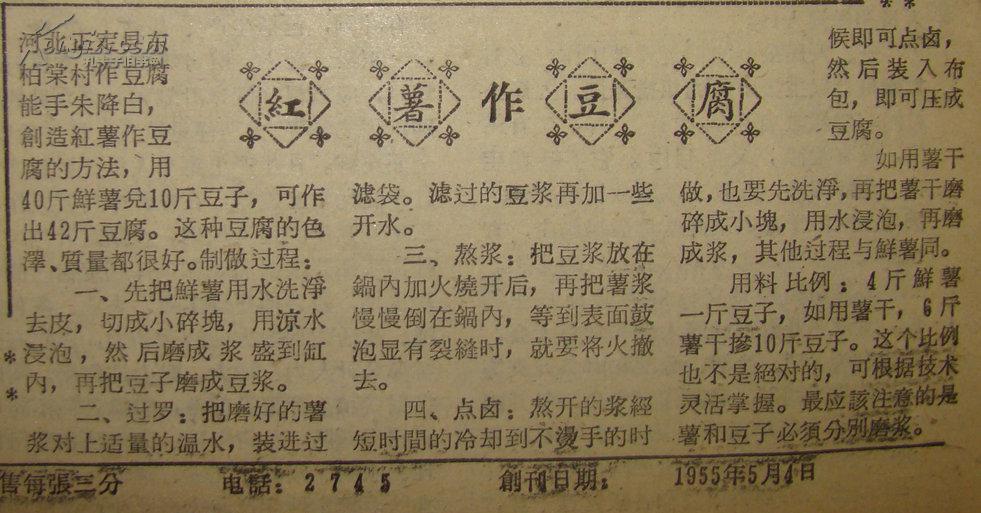 紅薯作豆腐
河北正定县布
柏棠村作豆腐
能手朱降白，
創造紅薯作豆
腐的方法，用
40斤鮮薯兌10斤豆子，可作
出42斤豆腐。这种豆腐的色
澤、質量都很好。制做过程：
一、先把鮮薯用水洗淨
去皮，切成小碎塊，用涼水
浸泡，然后磨成浆盛到缸
內，再把豆子磨成豆浆。
二、过罗：把磨好的薯
浆对上适量的溫水，装进过
滤袋。滤过的豆浆再加一些
开水。
三、熬浆：把豆浆放在
鍋內加火燒开后，再把薯浆
慢慢倒在鍋內，等到表面鼓
泡显有裂縫时，就要将火撤
去。
四、点卤：熬开的浆經
短时間的冷却到不燙手的时
候即可点卤，
然后装入布
包，即可压成
豆腐。
如用薯干
做，也要先洗淨，再把薯干磨
碎成小塊，用水浸泡，再磨
成浆，其他过程与鮮薯同。
用料比例：4斤鮮薯
一斤豆子，如用薯干，6斤
薯干摻10斤豆子。这个比例
也不是絕对的，可根据技术
灵活掌握。最应該注意的是
薯和豆子必須分別磨浆。
售每張三分 电話：2745 創刊日期： 1955年5月4日